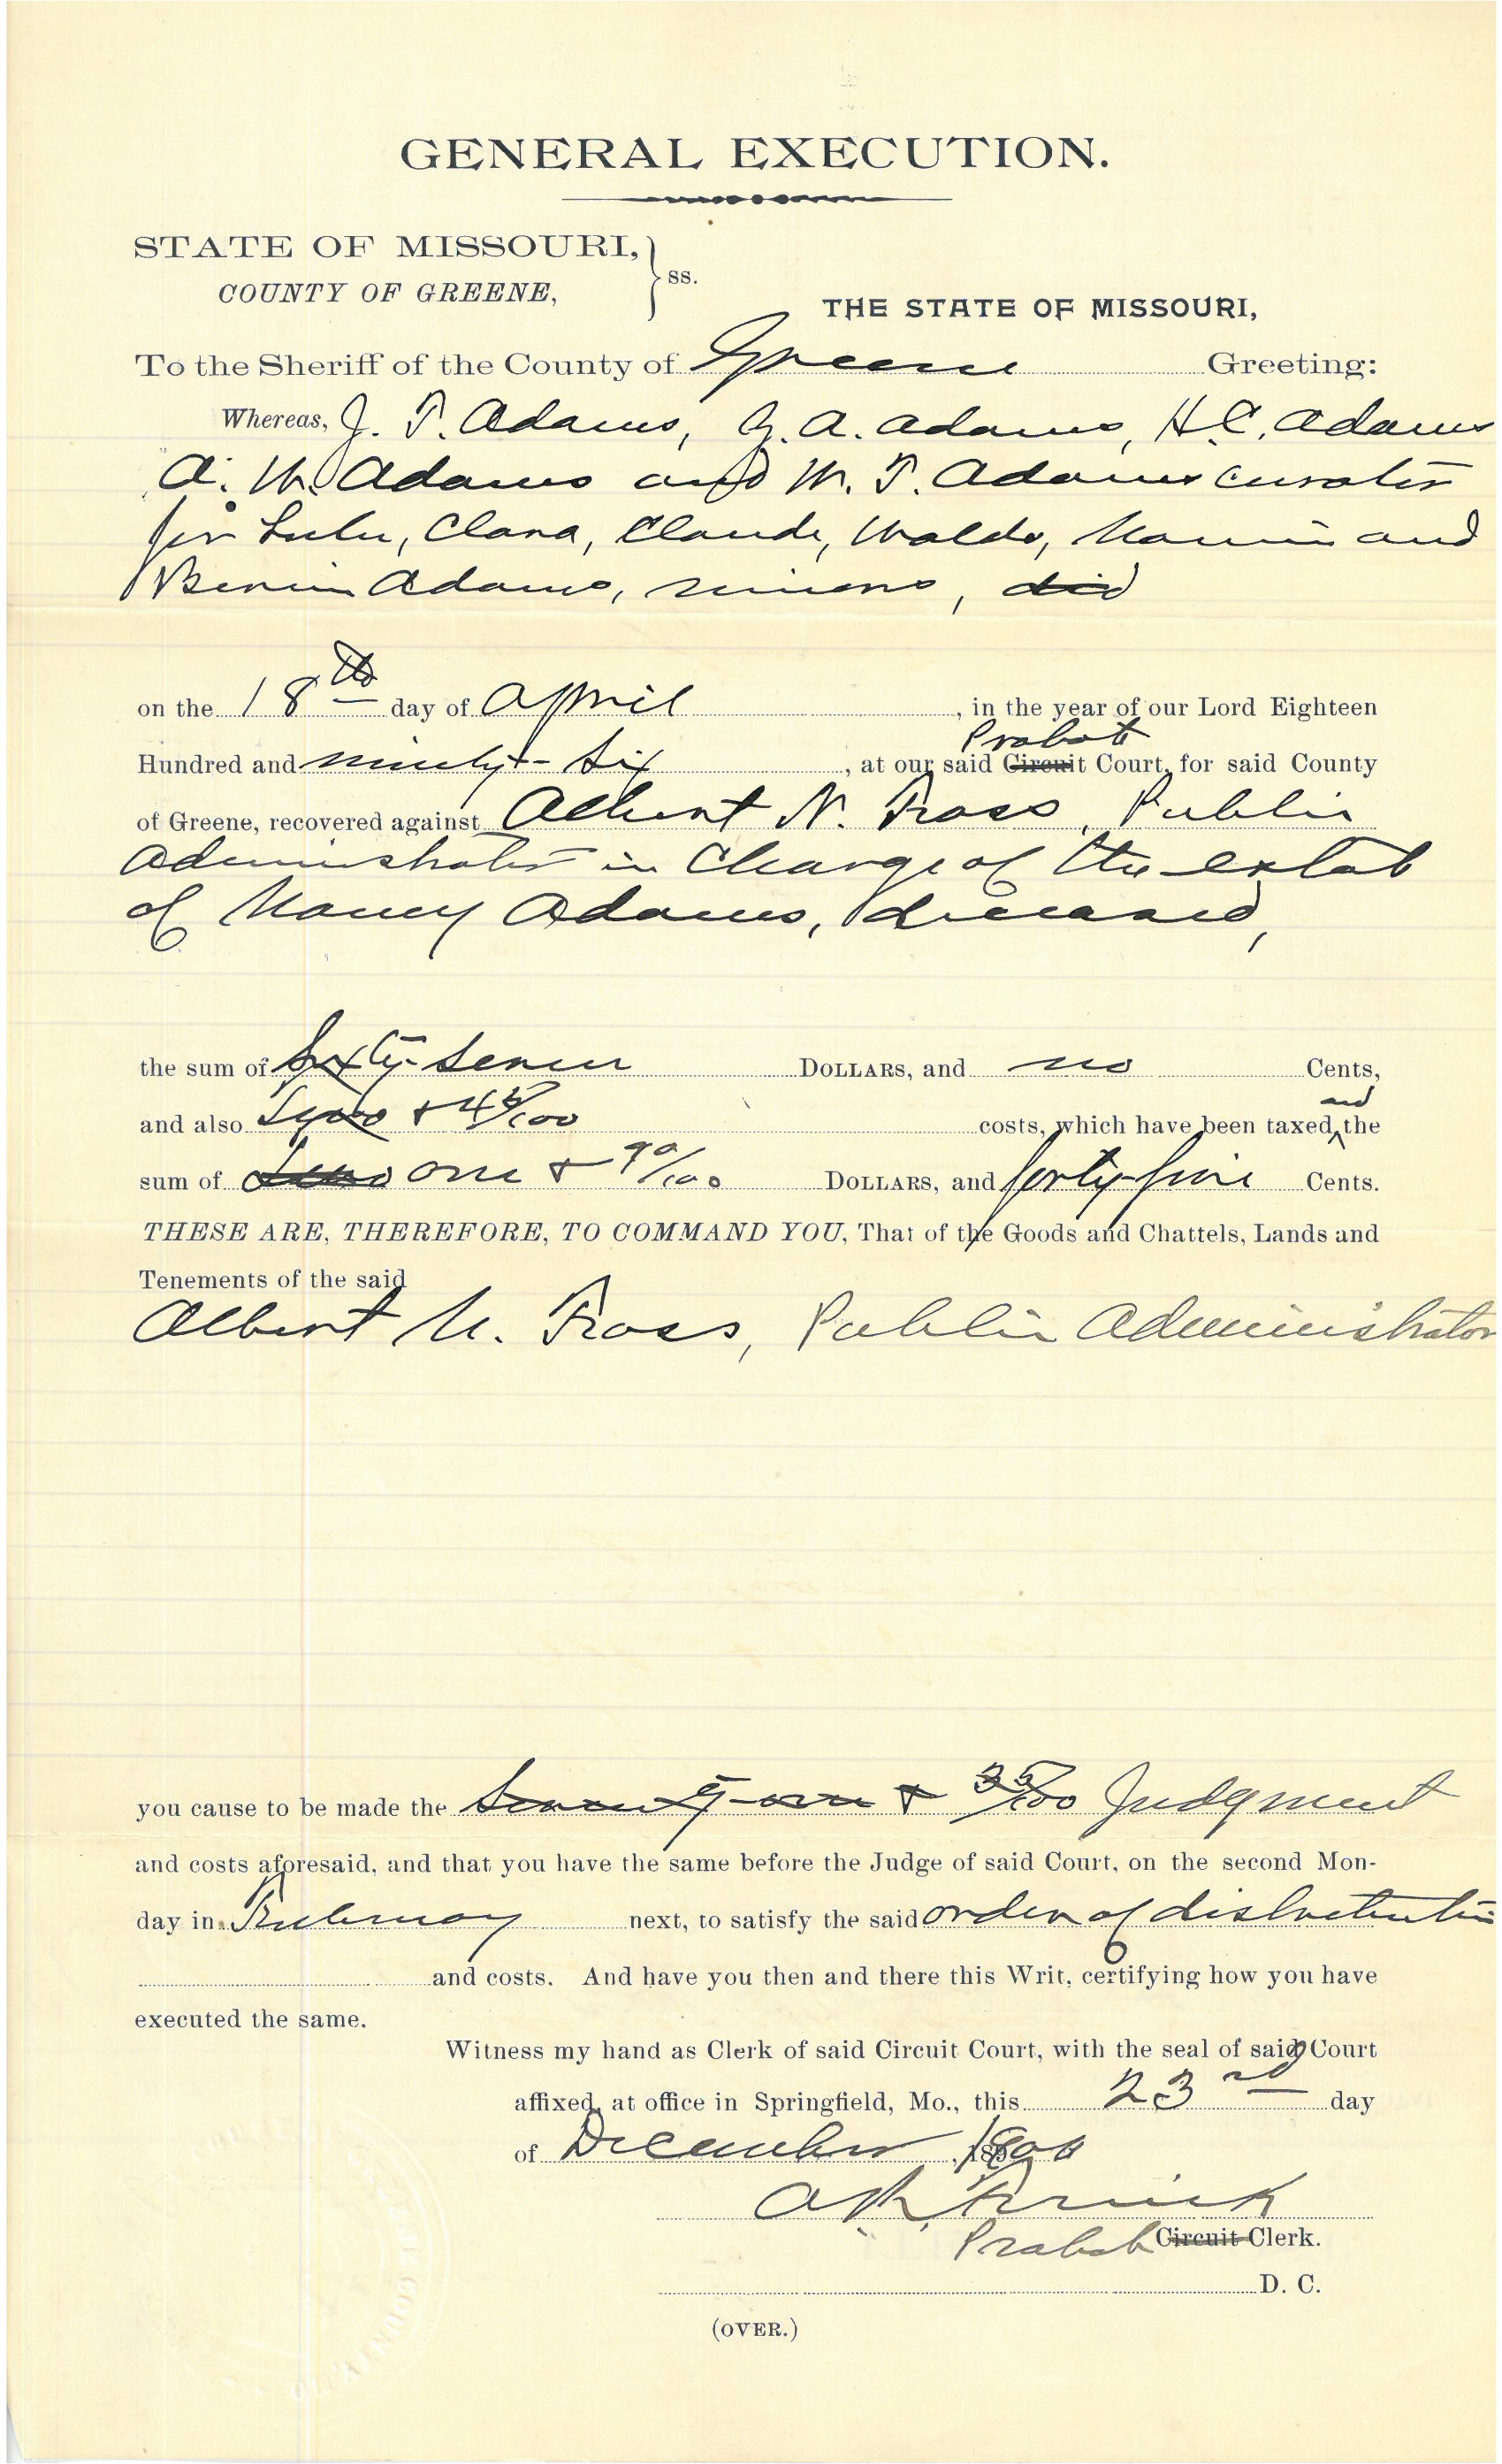 GENERAL EXECUTION.
STATE OF MISSOURI,
COUNTY OF GREENE,
ss.
THE STATE OF MISSOURI,
To the Sheriff of the County of Greene Greeting:
Whereas, J. T. Adams, G. A. Adams, H. C. Adams
A. W. Adams and M. T. Adams curator
for Lulu, Clara, Claude, Waldo, and
Adams, minors, did
on the 18th day of April, in the year of our Lord Eighteen
Probate
Hundred and ninety-six, at our said Circuit Court, for said County
of Greene, recovered against Albert N. Fross, Public
Administrator in Charge of the estate
of Nancy Adams, deceased,
the sum of Sixty-seven DOLLARS, and no Cents,
and
and also Two + 45/100 costs, which have been taxed, the
sum of one + 90/100 DOLLARS, and forty-five Cents.
THESE ARE, THEREFORE, TO COMMAND YOU, That of the Goods and Chattels, Lands and
Tenements of the said
Albert N. Fross, Public Administrator
you cause to be made the Seventy-one + 35/100 Judgment
and costs aforesaid, and that you have the same before the Judge of said Court, on the second Mon-
day in February next, to satisfy the said order of distribution
and costs. And have you then and there this Writ, certifying how you have
executed the same.
Witness my hand as Clerk of said Circuit Court, with the seal of said Court
affixed, at office in Springfield, Mo., this 23rd day
of December, 1900
Probate Circuit Clerk.
D. C.
(OVER.)